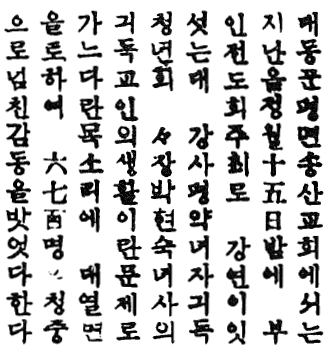 대동군평면송산교회에서는
지난음정월十五日밤에 부
인전도회주최로 강연이잇
섯는대 강사평양녀자긔독
청년회 장박현숙녀사의
긔독교인의생활이란문제로
가느다란목소리에 대열변
을토하여 六七百명 청중
으로넘친감동을밧엇다한다